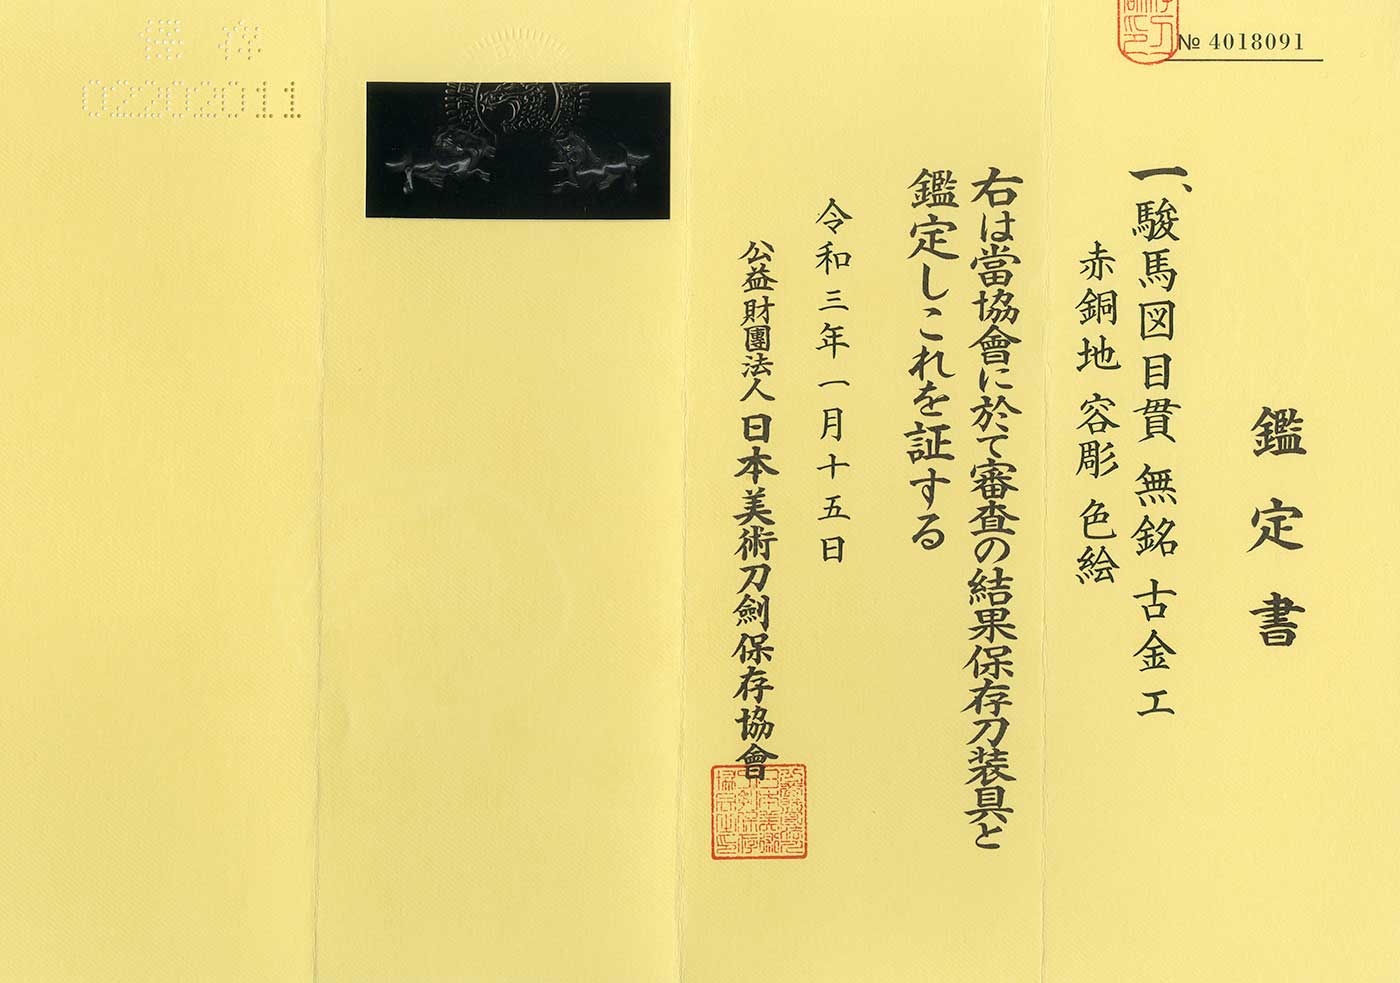 № 4018091
鑑定書
一、駿馬図目貫 無銘 古金工
赤銅地 容彫 色絵
右は當協會に於て審査の結果保存刀装具と
鑑定しこれを証する
令和三年一月十五日
公益財團法人 日本美術刀劍保存協會
保存
02202011